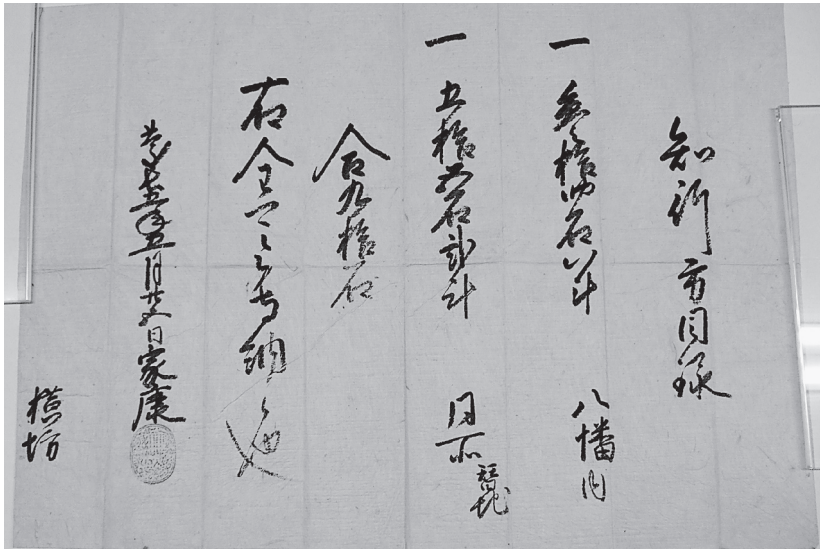 知行方目録
一 参拾四石八斗 八幡内
一 五拾五石弐斗 同所
合九拾石
右全可令寺納候也
慶長五年五月廿五日家康
横坊